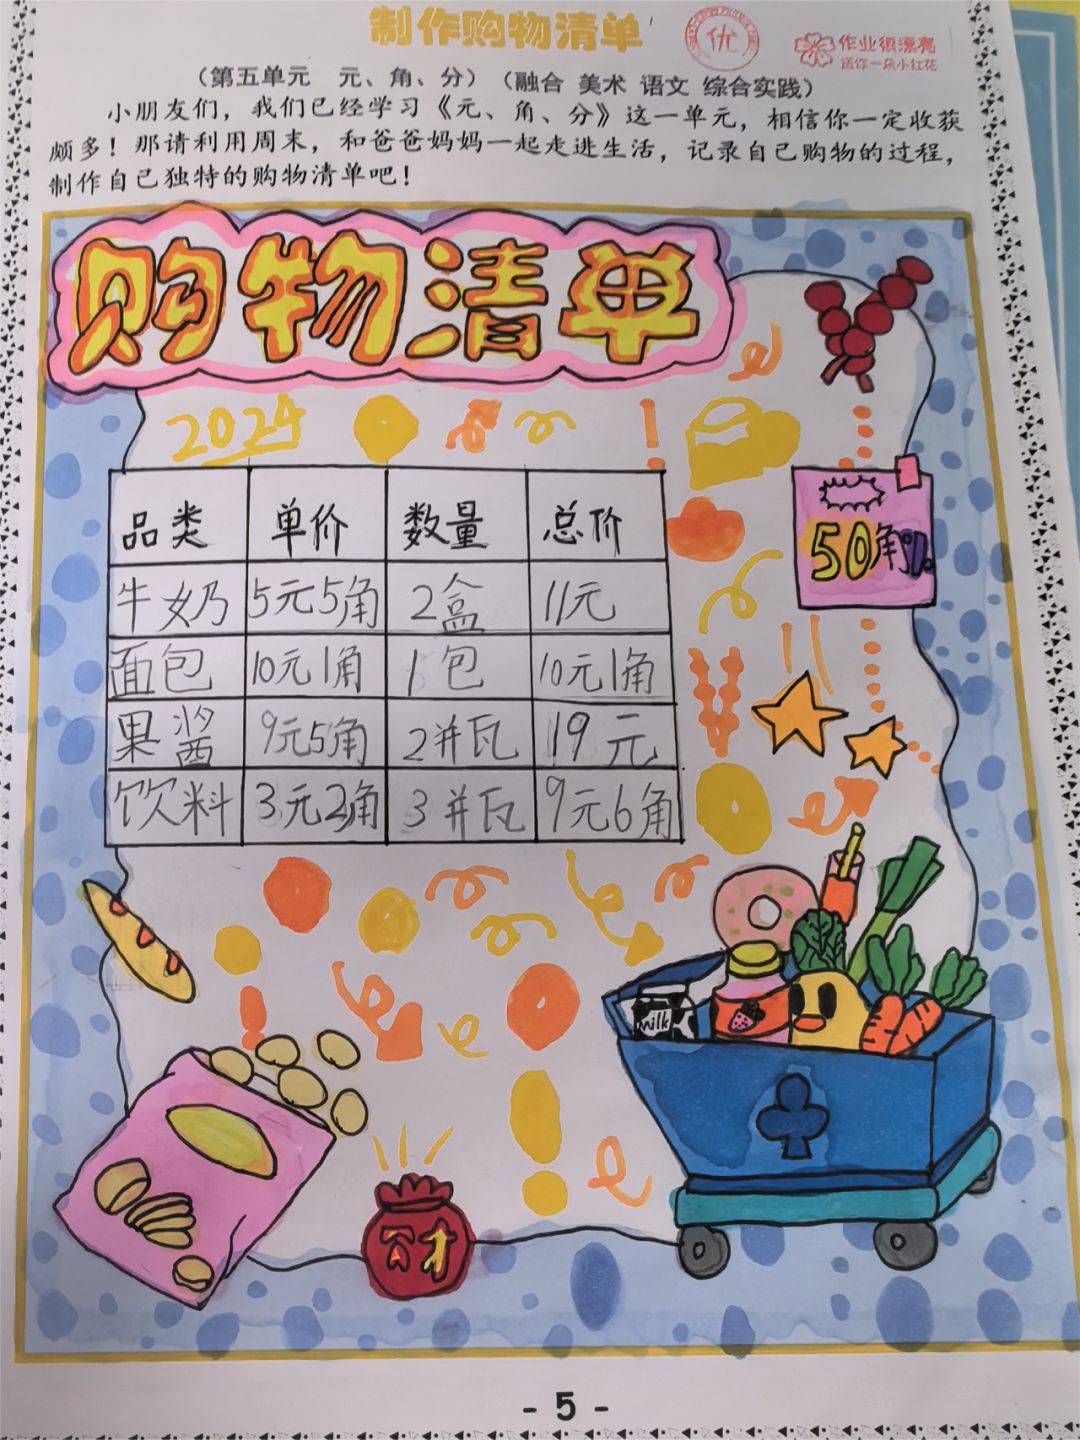 制作购物清单
优
作业很漂亮
送你一朵小红花
（第五单元 元、角、分）（融合 美术 语文 综合实践）
小朋友们，我们已经学习《元、角、分》这一单元，相信你一定收获
颇多！那请利用周末，和爸爸妈妈一起走进生活，记录自己购物的过程，
制作自己独特的购物清单吧！
购物清单
2024
品类 单价 数量 总价
牛奶 5元5角 2盒 11元
面包 10元1角 1包 10元1角
果酱 9元5角 2瓶 19元
饮料 3元2角 3瓶 9元6角
50角%
milk
- 5 -